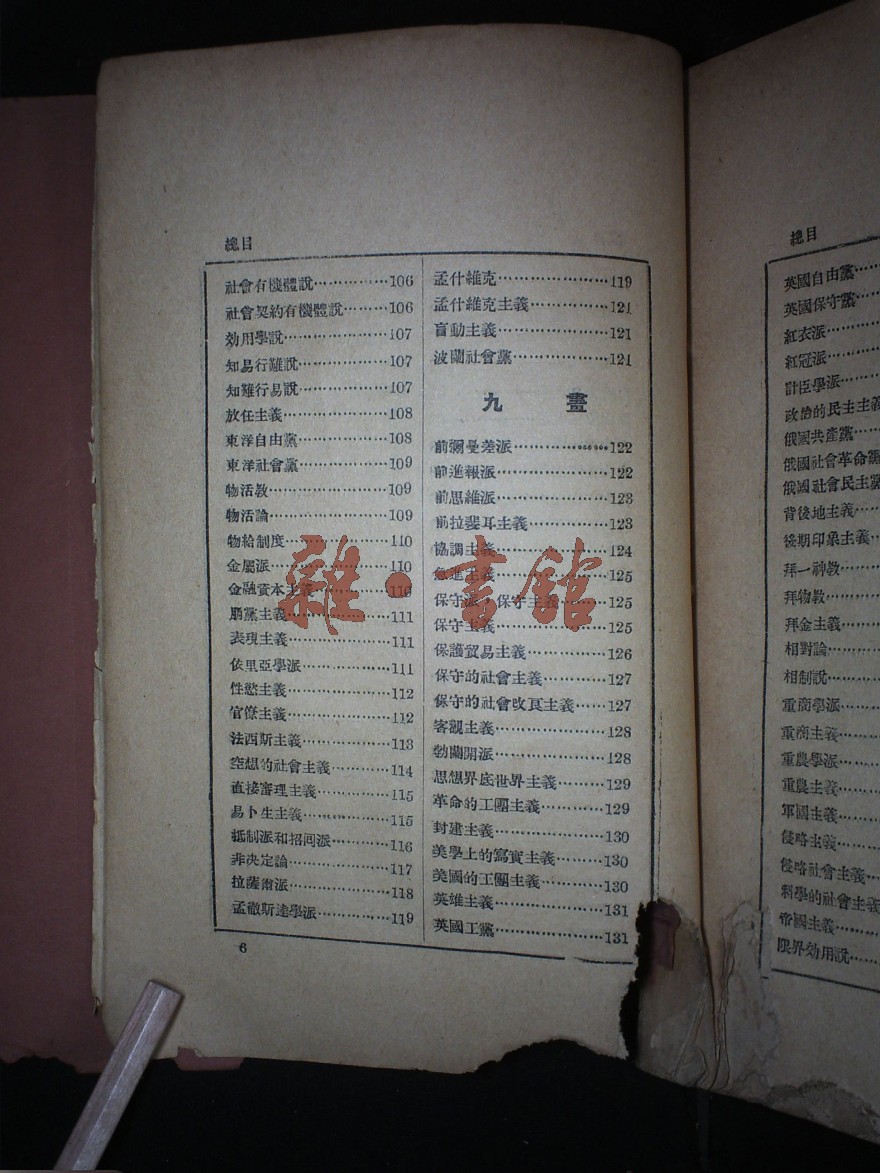 總目
社會有機體說……106
社會契約有機體說……106
効用學說……107
知易行難說……107
知難行易說……107
放任主義……108
東洋自由黨……108
東洋社會黨……109
物活教……109
物活論……109
物給制度……110
金屬派……110
金融資本主義……110
朋黨主義……111
表現主義……111
依里亞學派……111
性慾主義……112
官僚主義……112
法西斯主義……113
空想的社會主義……114
直接審理主義……115
易卜生主義……115
抵制派和招囘派……116
非決定論……117
拉薩爾派……118
孟徹斯達學派……119
孟什維克……119
孟什維克主義……121
盲動主義……121
波蘭社會黨……121
九畫
前彌曼差派……122
前進報派……122
前思維派……123
前拉斐耳主義……123
協調主義……124
急進主義……125
保守派 保守主義……125
保守主義……125
保護貿易主義……126
保守的社會主義……127
保守的社會改良主義……127
客觀主義……128
勃蘭開派……128
思想界底世界主義……129
革命的工團主義……129
封建主義……130
美學上的寫實主義……130
美國的工團主義……130
英雄主義……131
英國工黨……131
6
總目
英國自由黨……
英國保守黨……
紅衣派……
紅冠派……
計臣學派……
政治的民主主義
俄國共產黨……
俄國社會革命黨
俄國社會民主黨
背後地主義……
後期印象主義…
拜一神教……
拜物教……
拜金主義……
相對論……
相制說……
重商學派……
重商主義……
重農學派……
重農主義……
軍國主義……
侵略主義……
侵略社會主義…
科學的社會主義
帝國主義……
限界効用說……
雜·書館